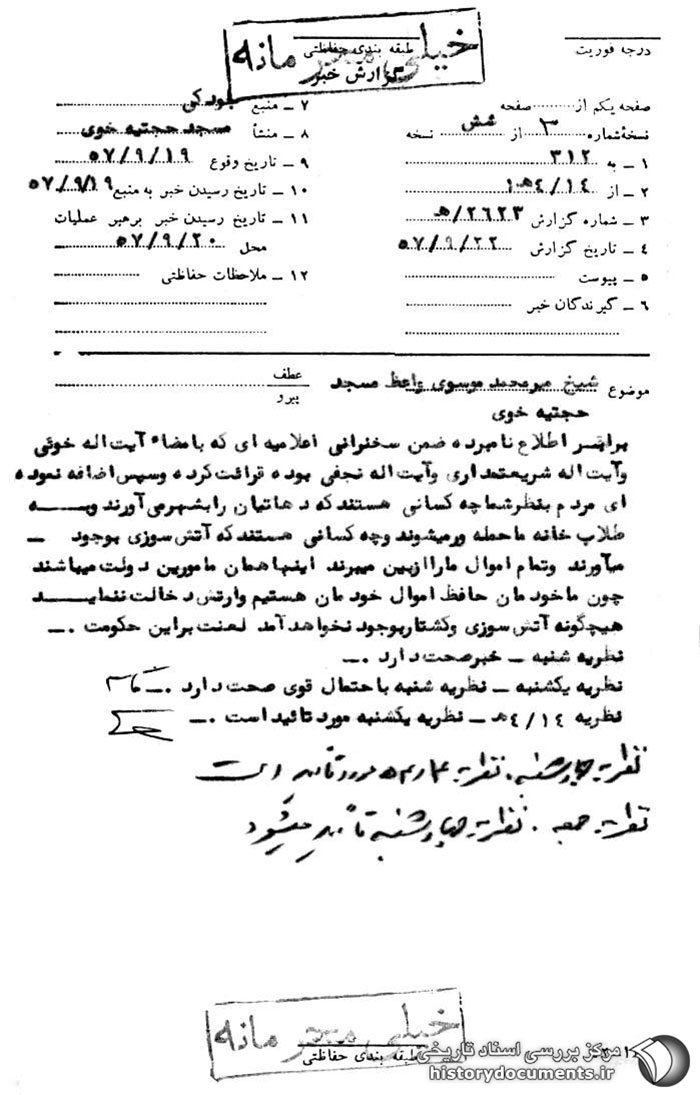 خیلی محرمانه
درجه فوریت
طبقه بندی حفاظتی
گزارش خبر
صفحه یکم از ........ صفحه
نسخهٔ شماره ۳ از شش نسخه
۱ ــ به ۳۱۲
۲ ــ از ۴/۱۴ هـ ۱
۳ ــ شماره گزارش ۲۶۲۳/هـ
۴ ــ تاریخ گزارش ۵۷/۹/۲۲
۵ ــ پیوست
۶ ــ گیرندگان خبر
۷ ــ منبع جودکی
۸ ــ منشأ مسجد حجتیه خوی
۹ ــ تاریخ وقوع ۵۷/۹/۱۹
۱۰ ــ تاریخ رسیدن خبر به منبع ۵۷/۹/۱۹
۱۱ ــ تاریخ رسیدن خبر برهبر عملیات
محل ۵۷/۹/۲۰
۱۲ ــ ملاحظات حفاظتی
موضوع شیخ میرمحمد موسوی واعظ مسجد
حجتیه خوی
عطف
پیرو
برابر اطلاع نامبرده ضمن سخنرانی اعلامیه ای که بامضاء آیت اله خوئی
وآیت اله شریعتمداری وآیت اله نجفی بوده قرائت کرده وسپس اضافه نموده
ای مردم بنظرشما چه کسانی هستند که دهاتیان را بشهر می آورند وبه
طلاب خانه ما حمله ور میشوند وچه کسانی هستند که آتش سوزی بوجود
میآورند وتمام اموال ما را ازبین میبرند اینها همان مامورین دولت میباشند
چون ما خودمان حافظ اموال خودمان هستیم وارتش دخالت ننماید
هیچگونه آتش سوزی وکشتار بوجود نخواهد آمد لعنت براین حکومت .ــ
نظریه شنبه ــ خبر صحت دارد .ــ
نظریه یکشنبه ــ نظریه شنبه با احتمال قوی صحت دارد .ــ
نظریه ۴/۱۴ هـ ــ نظریه یکشنبه مورد تائید است .ــ
نظریه چهارشنبه . نظریه ۴/۱۴ هـ مورد تأیید است
نظریه جمعه . نظریه چهارشنبه تأیید میشود
خیلی محرمانه
طبقه بندی حفاظتی
مرکز بررسی اسناد تاریخی
historydocuments.ir